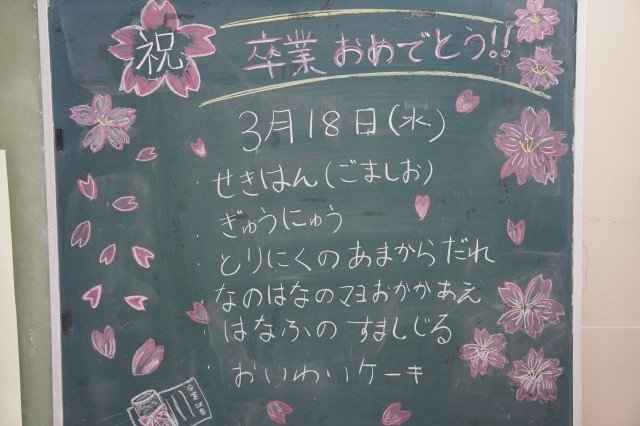 祝
卒業おめでとう!!
3月18日(水)
・せきはん(ごましお)
・ぎゅうにゅう
・とりにくのあまからだれ
・なのはなのマヨおかかあえ
・はなふのすましじる
・おいわいケーキ